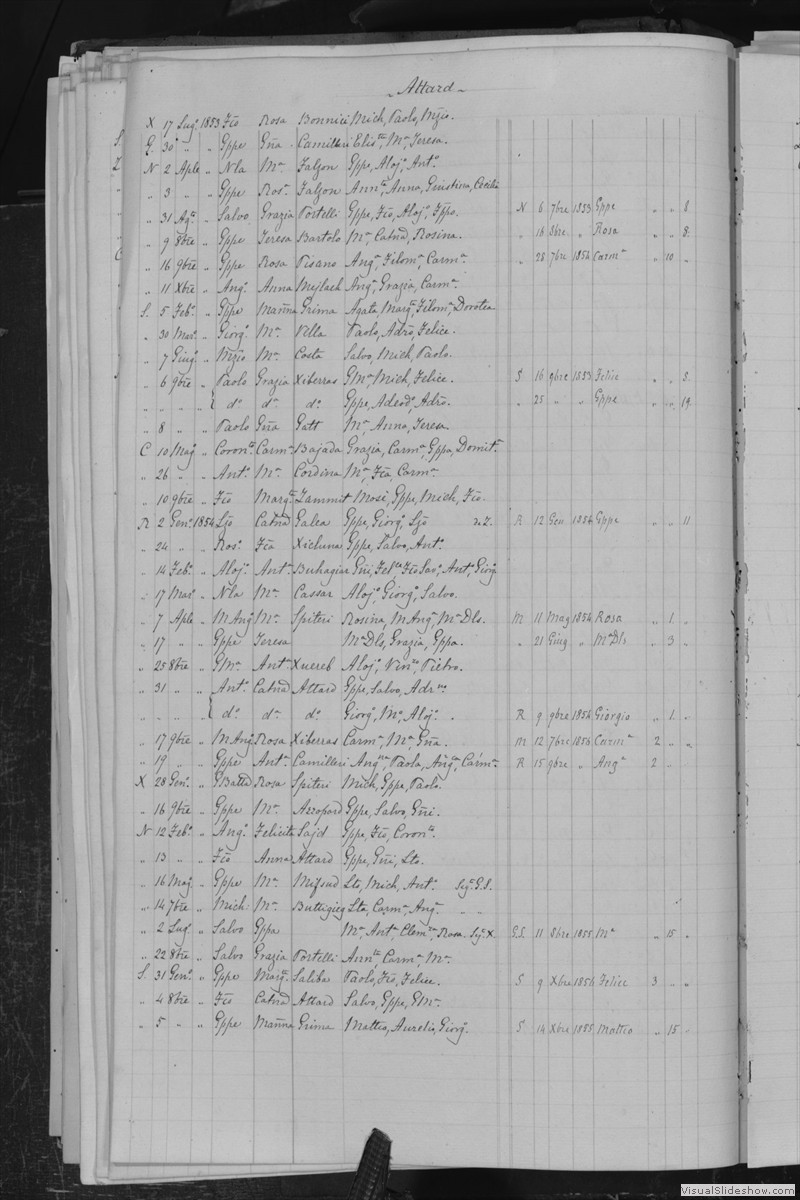 Attard
X 17 Lug. 1853 Fco Rosa Bonnici Mich, Paolo, Mzio.
S. G. 30 " " Gppe Gna Camilleri Elista, Ma, Teresa.
Z N 2 Aple " Nla Ma Falzon Gppe, Alojo, Anto
" " 3 " " Gppe Rosa Falzon Anna, Anna, Giustina, Cecilia
" " 31 Ago " Salvo Grazia Portelli Gppe, Fco, Alojo, Fppo. N 6 7bre 1853 Gppe " " 8
" " 9 8bre " Gppe Teresa Bartolo Ma, Catna, Rosina. " 16 8bre " Rosa " " 8.
C " 16 9bre " Gppe Rosa Pisano Anga, Filoma, Carma. " 28 7bre 1854 Carma " 10 "
" 11 Xbre " Ango Anna Mejlach Anga, Grazia, Carma.
S. 5 Febo " Gppe Manna Grima Agata, Marga, Filoma, Dorotea
" 30 Maro " Giorgo Ma Vella Paolo, Adro, Felice.
" 7 Giugo " Mzio Ma Costa Salvo, Mich, Paolo.
" 6 9bre " Paolo Grazia Xiberras GMa, Mich, Felice. S 16 9bre 1853 Felice " " 3.
" " " " { do do do Gppe, Adeodo, Adro. " 25 " " Gppe " " 19.
" 8 " " Paolo Gna Gatt Ma, Anna, Teresa.
C 10 Mago " Corono Carma Bajada Grazia, Carma, Gppa, Domita
" 26 " " Anto Ma Cordina Ma, Fca, Carma.
" 10 9bre " Fco Marga Zammit Mosè, Gppe, Mich, Fco.
R 2 Geno 1854 Lzo Catna Galea Gppe, Giorgo, Lzo n.Z. R 12 Gen 1854 Gppe " " 11
" 24 " " Roso Fca Xicluna Gppe, Salvo, Anto
" 14 Febo " Alojo Anta Buhagiar Gni, Fco Savo, Anto, Giorgo
" 17 Maro " Nla Ma Cassar Alojo, Giorgo, Salvo.
" 7 Aple " M Ango Ma Spiteri Rosina, M Anga, Ma Dls. M 11 Mag 1854 Rosa " 1. "
" 17 " " Gppe Teresa Ma Dls, Grazia, Gppa. " 21 Giug " Ma Dls " 3 "
" 25 8bre " GMa Anta Xuereb Alojo, Pietro.
" 31 " " Anto Catna Attard Gppe, Salvo, Adrno
" " " " { do do do Giorgo, Ma, Alojo. R 9 9bre 1854 Giorgio " 1. "
" 17 9bre " M Ango Rosa Xiberras Carma, Ma, Gna. M 12 7bre 1856 Carma 2 " "
" 19 " " Gppe Anta Camilleri Paola, Anga, Carma. R 15 9bre " Anga 2 " "
X 28 Geno " GBatta Rosa Spiteri Mich, Gppe, Paolo.
" 16 9bre " Gppe Ma Azzopard Gppe, Salvo, Gni.
N 12 Febo " Ango Felicita Sajd Gppe, Fco, Corono.
" 13 " " Fco Anna Attard Gppe, Gni, Lto.
" 16 Mago " Gppe Ma Mifsud Lto, Mich, Anto. G.S.
" 14 7bre " Mich Ma Buttigieg Lto, Carma, Anga. " "
" 2 Lugo " Salvo Gppa Ma, Anta, Rosa. X. G.S. 11 8bre 1855 Ma " 15 "
" 22 8bre " Salvo Grazia Portelli Annta, Carma, Ma.
S. 31 Geno " Gppe Marga Saliba Paolo, Fco, Felice. S 9 Xbre 1856 Felice 3 " "
" 4 8bre " Fco Catna Attard Salvo, Gppe, GMa.
" 5 " " Gppe Manna Grima Matteo, Aurelio, Giorgo. S 14 Xbre 1855 Matteo " 15 "
VisualSlideshow.com